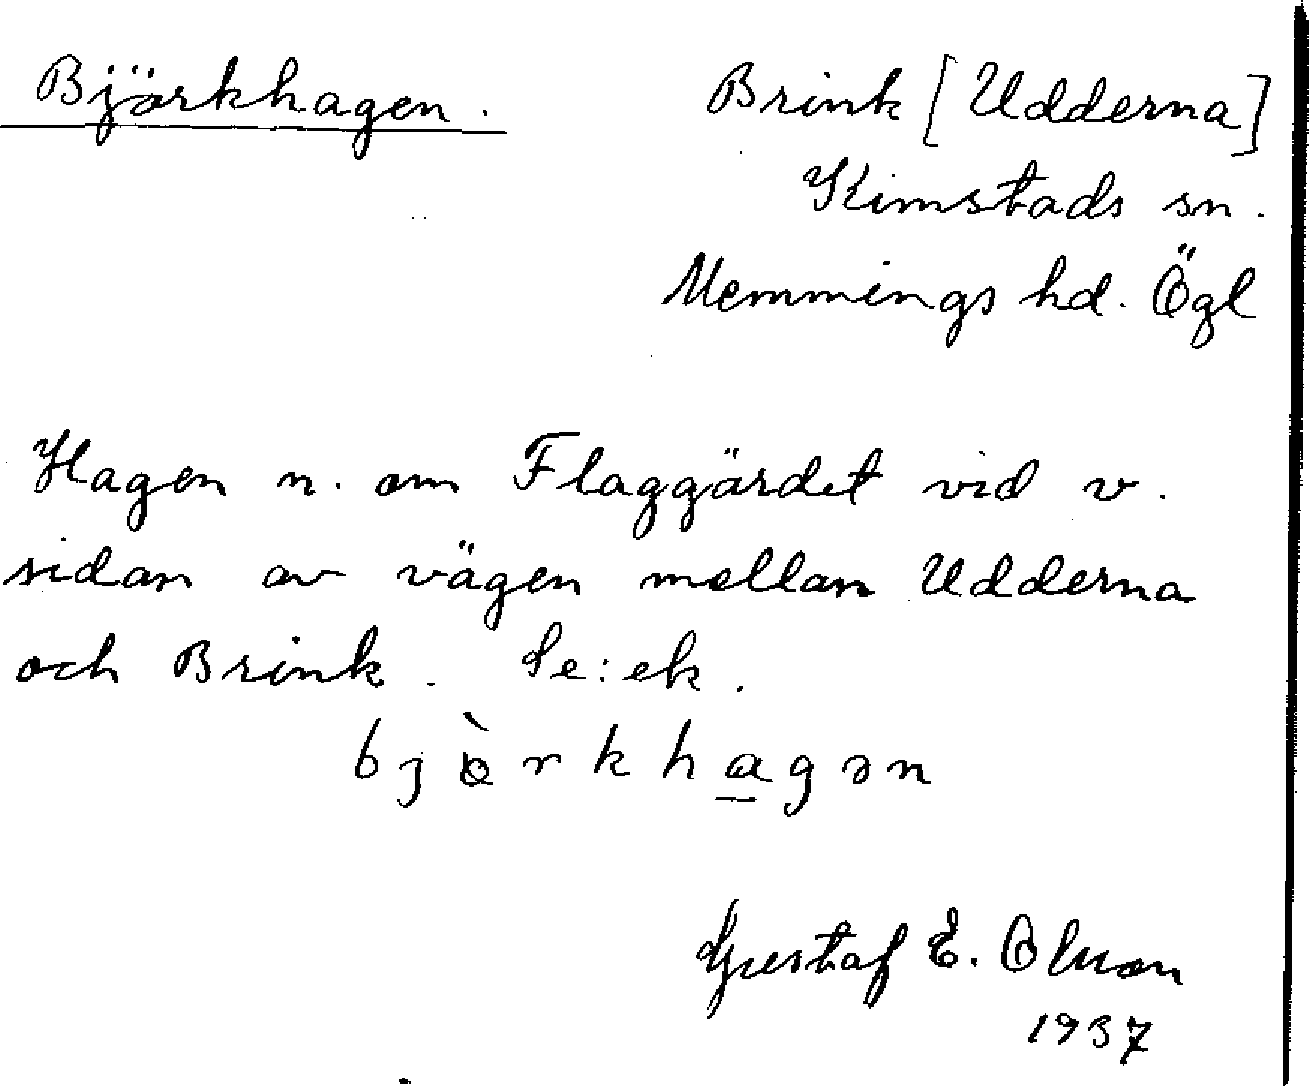 Björkhagen.
Brink [Udderna]
Kimstads sn.
Memmings hd. Ögl
Hagen n. om Flaggärdet vid v.
sidan av vägen mellan Udderna
och Brink. Se: ek.
bjò̱rkha̲gən
Gustaf E. Olsson
1937